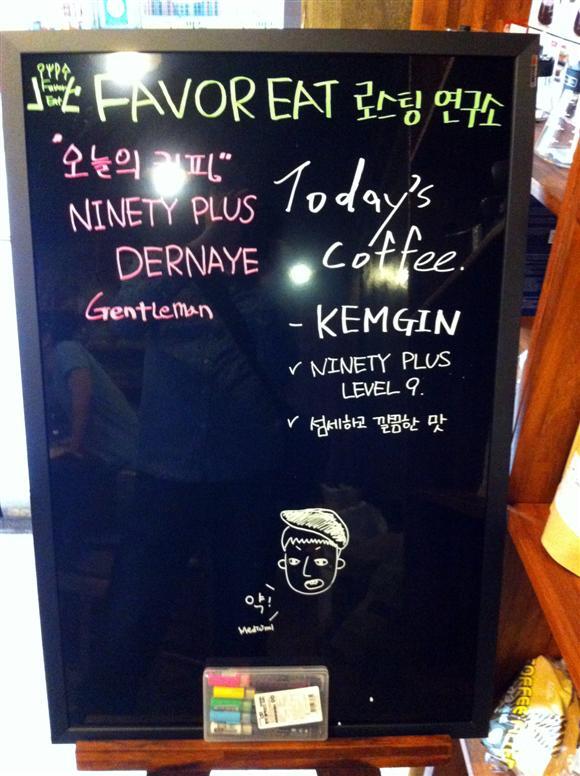 Favor
Eat
FAVOR EAT 로스팅 연구소
"오늘의 커피"
NINETY PLUS
DERNAYE
Gentleman
Today's
coffee.
- KEMGIN
✓ NINETY PLUS
LEVEL 9.
✓ 섬세하고 깔끔한 맛
약!